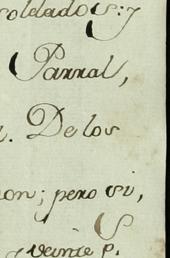 soldados: y
Parral,
. De los
on; pero si,
S
veinte p.